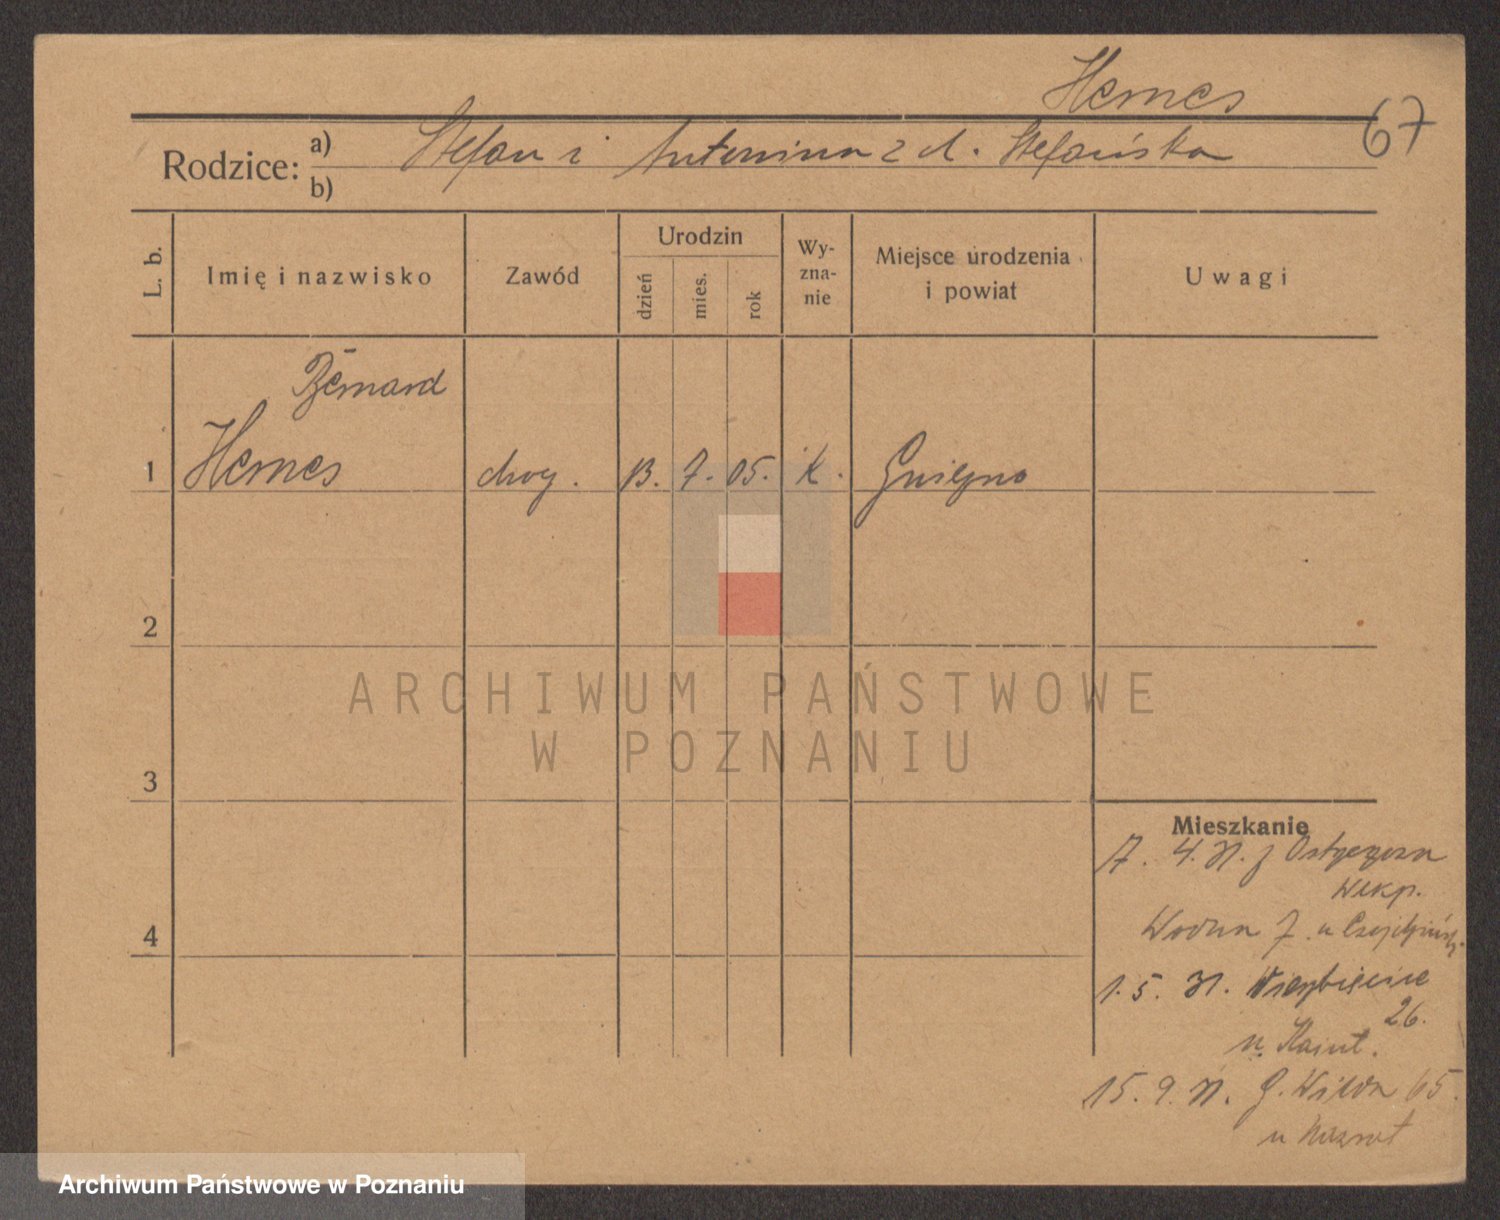 Hemes
67
Rodzice: a) Stefan i Antonina z d. Stefańska
b)
L. b.
Imię i nazwisko
Zawód
Urodzin
dzień
mies.
rok
Wy-
zna-
nie
Miejsce urodzenia
i powiat
Uwagi
Bernard
1 Hemes drog. 13. 7. 05. K. Gniezno
2
3
4
Mieszkanie
7. 4. 31. z
Wlkp.
Wodna 7 u
1. 5. 31. Wierzbięcice
26.
u
15. 9. 31. G. Wilda 65.
u
ARCHIWUM PAŃSTWOWE
W POZNANIU
Archiwum Państwowe w Poznaniu